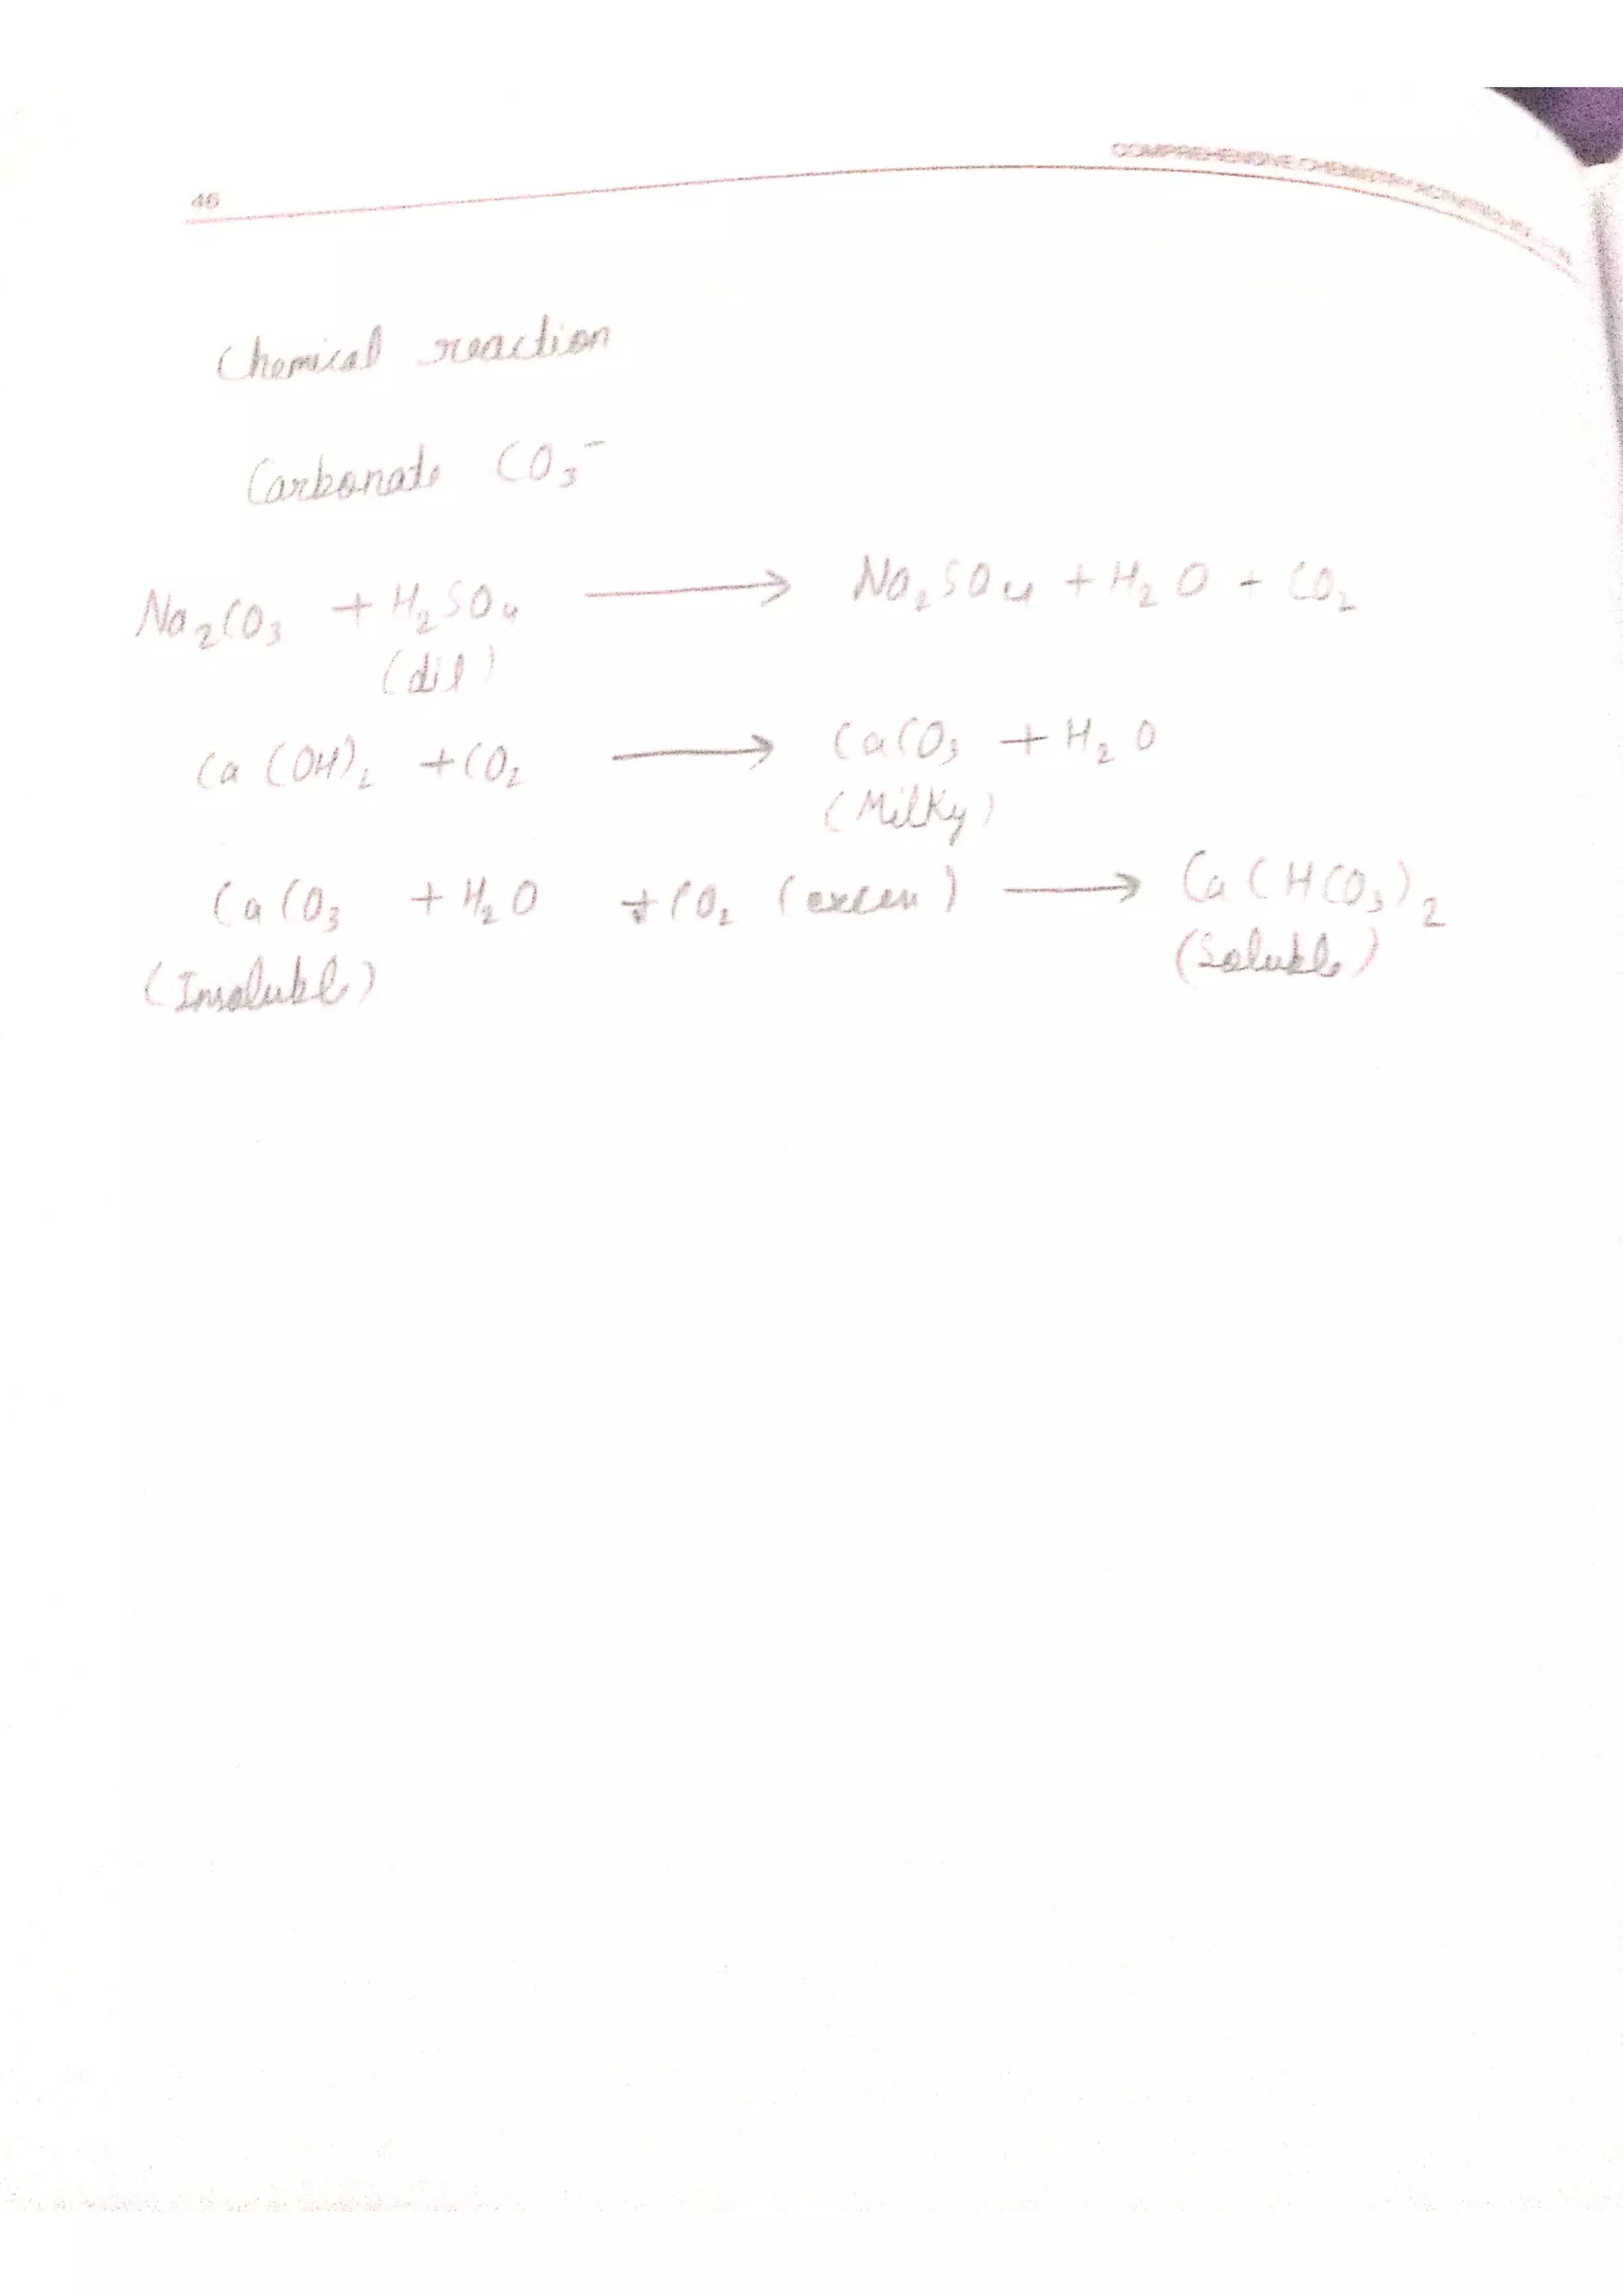 46
COMPREHENSIVE CHEMISTRY ACTIVITIES
Chemical reaction
Carbonate CO₃⁻
Na₂CO₃ + H₂SO₄ ⟶ Na₂SO₄ + H₂O + CO₂
(dil)
Ca(OH)₂ + CO₂ ⟶ CaCO₃ + H₂O
(Milky)
CaCO₃ + H₂O + CO₂ (excess) ⟶ Ca(HCO₃)₂
(Insoluble) (Soluble)